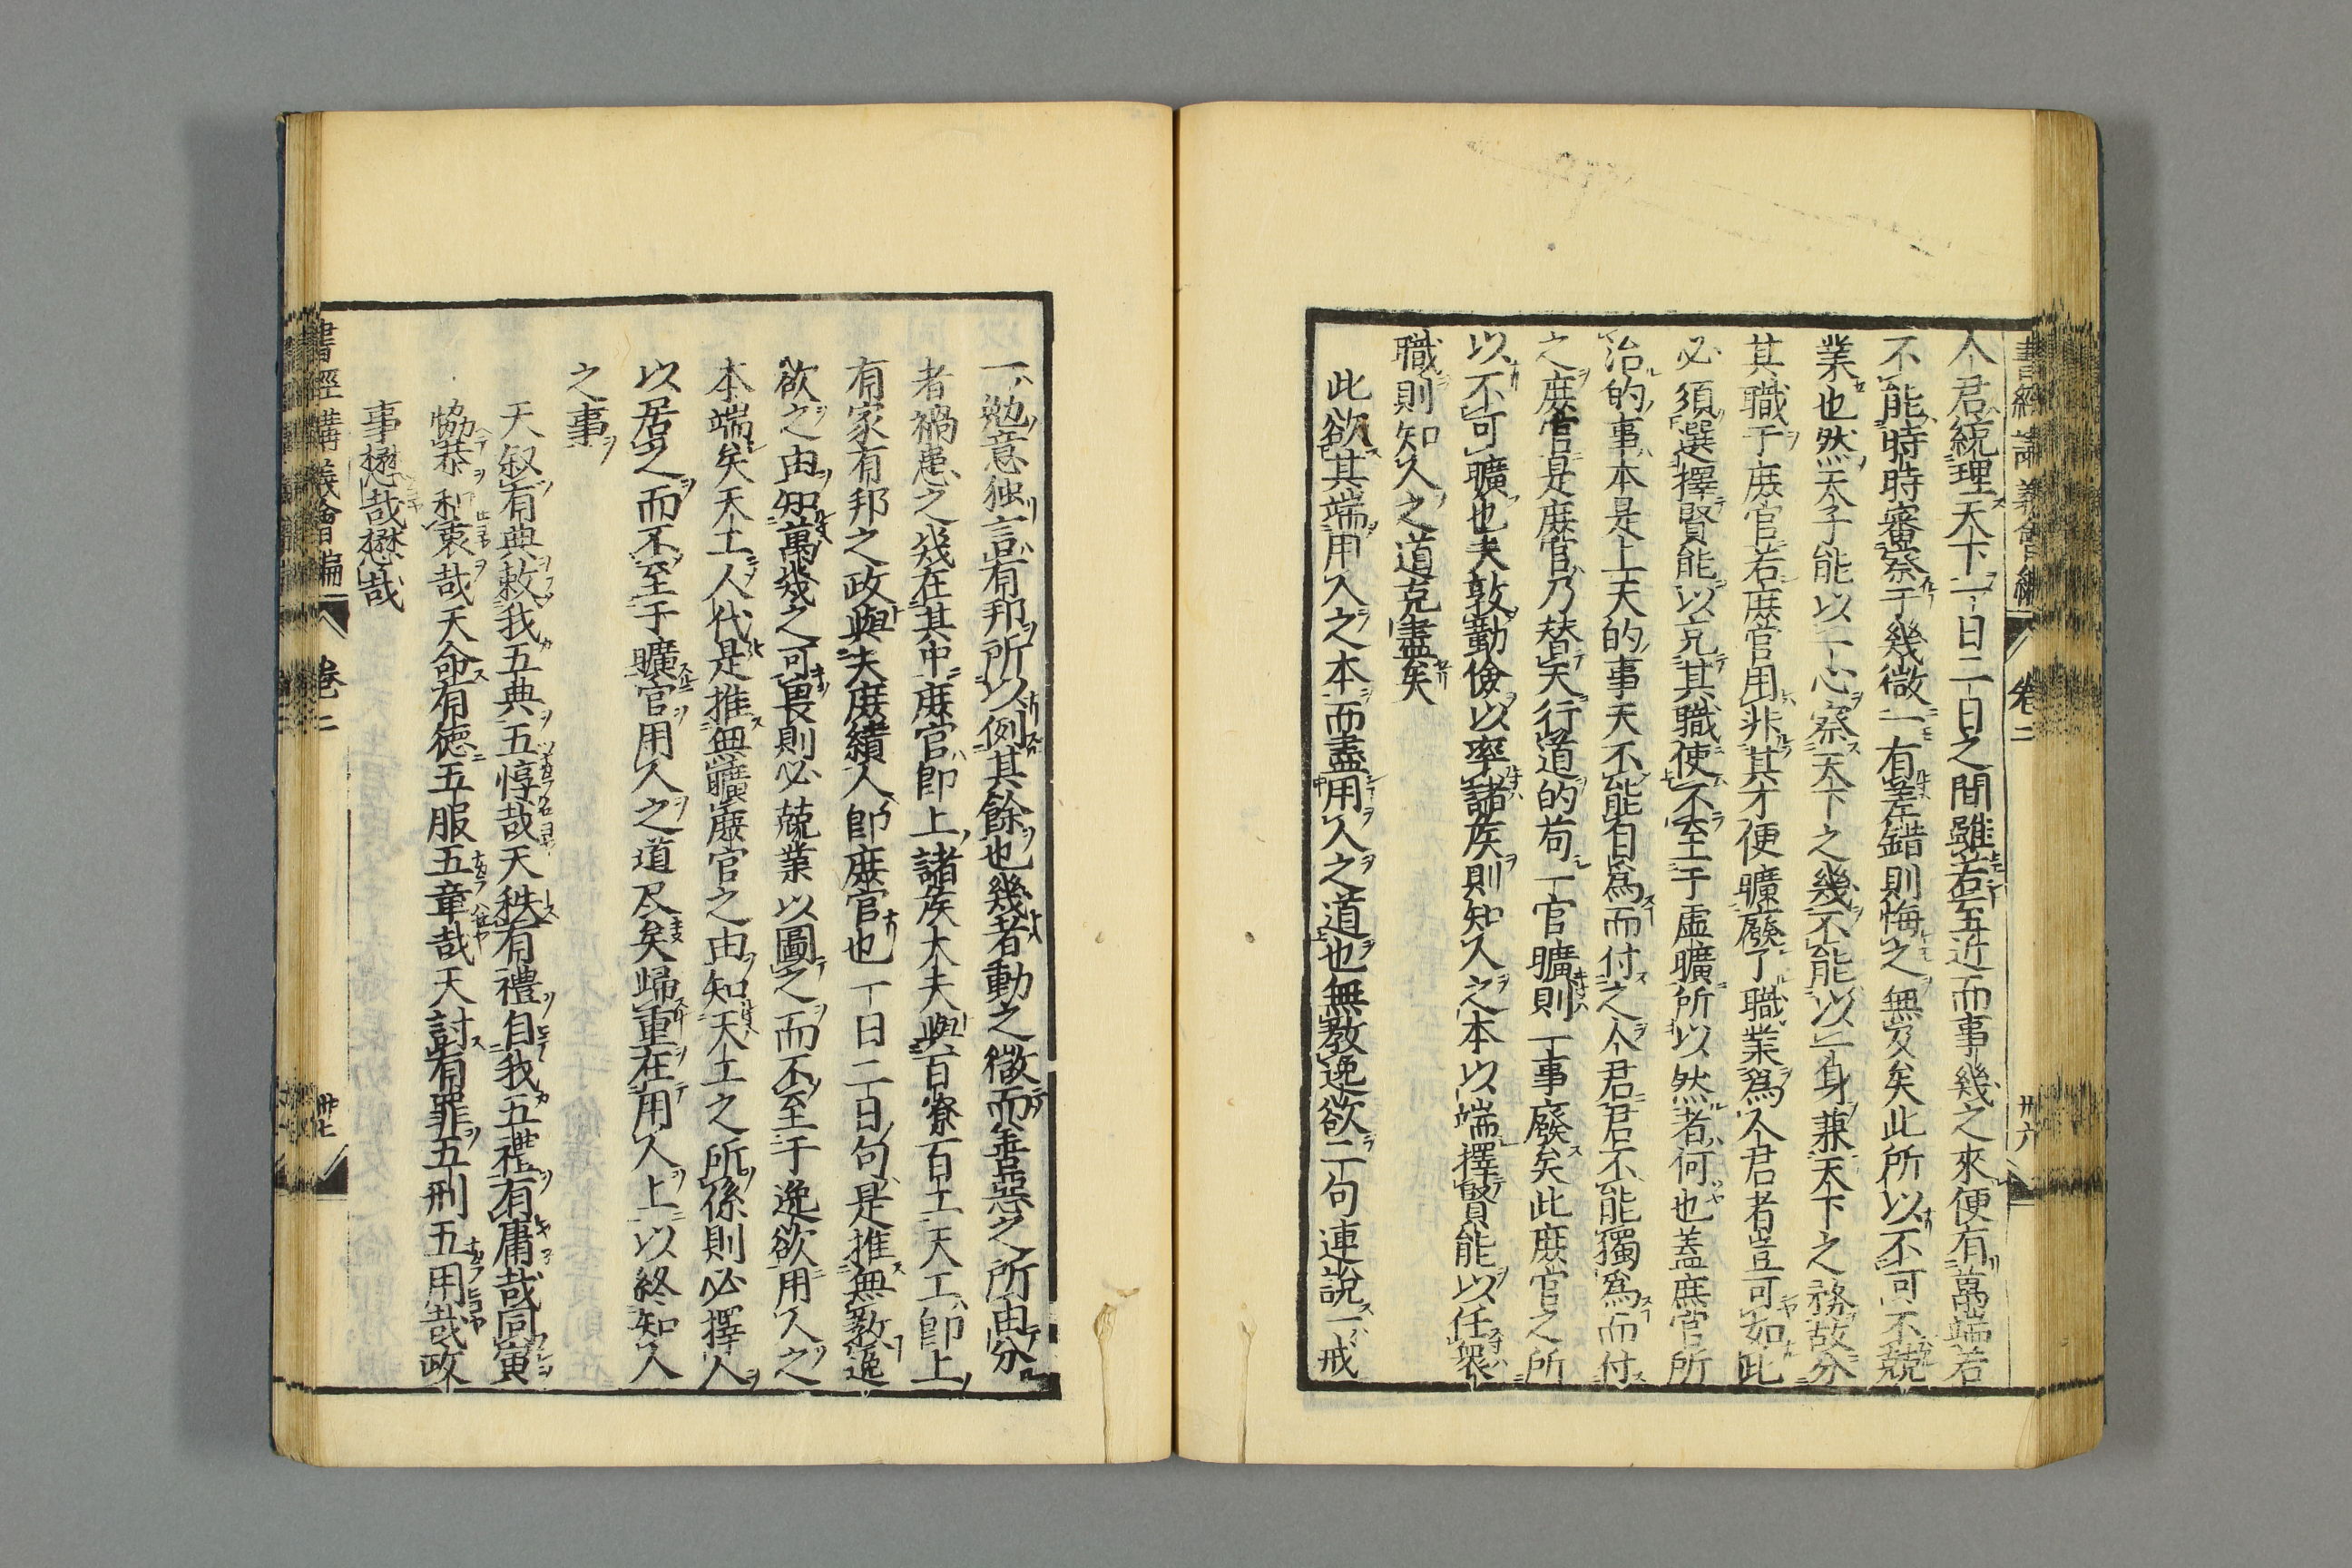 書經講義會編 卷二 卅六
人君統理天下一日二日之間雖若至近而事幾之來便有萬端若
不能時時審察于幾微一有差錯則悔之無及矣此所以不可不兢
業也然天子能以一心察天下之幾不能以一身兼天下之務故分
其職于庶官若庶官用非其才便曠廢了職業爲人君者豈可如此
必須選擇賢能以充其職使不至于虛曠所以然者何也蓋庶官所
治的事本是上天的事天不能自爲而付之人君君不能獨爲而付
之庶官是庶官乃替天行道的苟一官曠則一事廢矣此庶官之所
以不可曠也夫敦勤儉以率諸侯則知人之本以端擇賢能以任衆
職則知人之道克盡矣
此欲其端用人之本而盡用人之道也無教逸欲二句連說一戒
一勉意独言有邦所以例其餘也幾者動之微而善惡之所由分
者禍患之幾在其中庶官卽上諸侯大夫與百寮百工天工卽上
有家有邦之政與夫庶績人卽庶官也一日二日句是推無教逸
欲之由知萬幾之可畏則必兢業以圖之而不至于逸欲用人之
本端矣天工人代是推無曠庶官之由知天工之所係則必擇人
以居之而不至于曠官用人之道尽矣歸重在用人上以終知人
之事
天叙有典敕我五典五惇哉天秩有禮自我五禮有庸哉同寅
協恭和衷哉天命有德五服五章哉天討有罪五刑五用哉政
事懋哉懋哉
書經講義會編 卷二 卅七